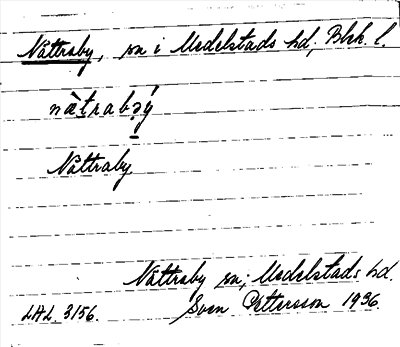 Nättraby, sn i Medelstads hd, Blek. l.
nàtrabẙ́
Nättraby.
Nättraby sn, Medelstads hd.
LAL 3156. Sven Pettersson 1936.